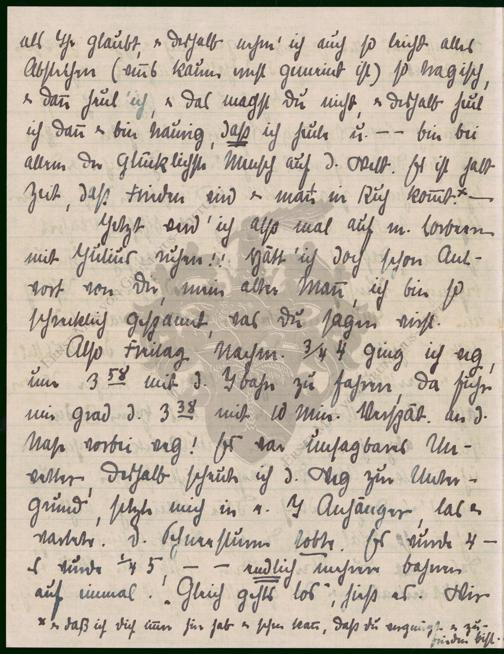 als Ihr glaubt, u deshalb nehm' ich auch so leicht alles
Abstehen (was kaum ernst gemeint ist) so tragisch,
u dann heul' ich, u das magst Du nicht, u deshalb heul
ich dann u bin traurig, daß ich heule u. — — bin bei
allem der glücklichste Mensch auf d. Welt. Es ist halt
Zeit, daß Frieden wird u man in Ruh kommt.* —
Jetzt werd' ich also mal auf m. Lorbeeren
mit Julius ruhen!! Hätt' ich doch schon Ant-
wort von Dir, mein alter Mann, ich bin so
schrecklich gespannt, was Du sagen wirst.
Also Freitag Nachm. 3/4 4 ging ich weg,
um 3 58 mit d. Bahn zu fahren, da fuhr
mir grad d. 3 38 mit 10 Min. Verspät. an d.
Nase vorbei weg! Es war unsagbares Un-
wetter, deshalb scheute ich d. Weg zur Unter-
grund, setzte mich in e. Anhänger, las u
wartete. D. Schneesturm tobte. Es wurde 4 —
es wurde 1/4 5, — — endlich mehrere Bahnen
auf einmal. „Gleich gehts los", hieß es. Wir
* u daß ich dich immer hier hab u sehen kann, daß du vergnügt u zu-
frieden bist.